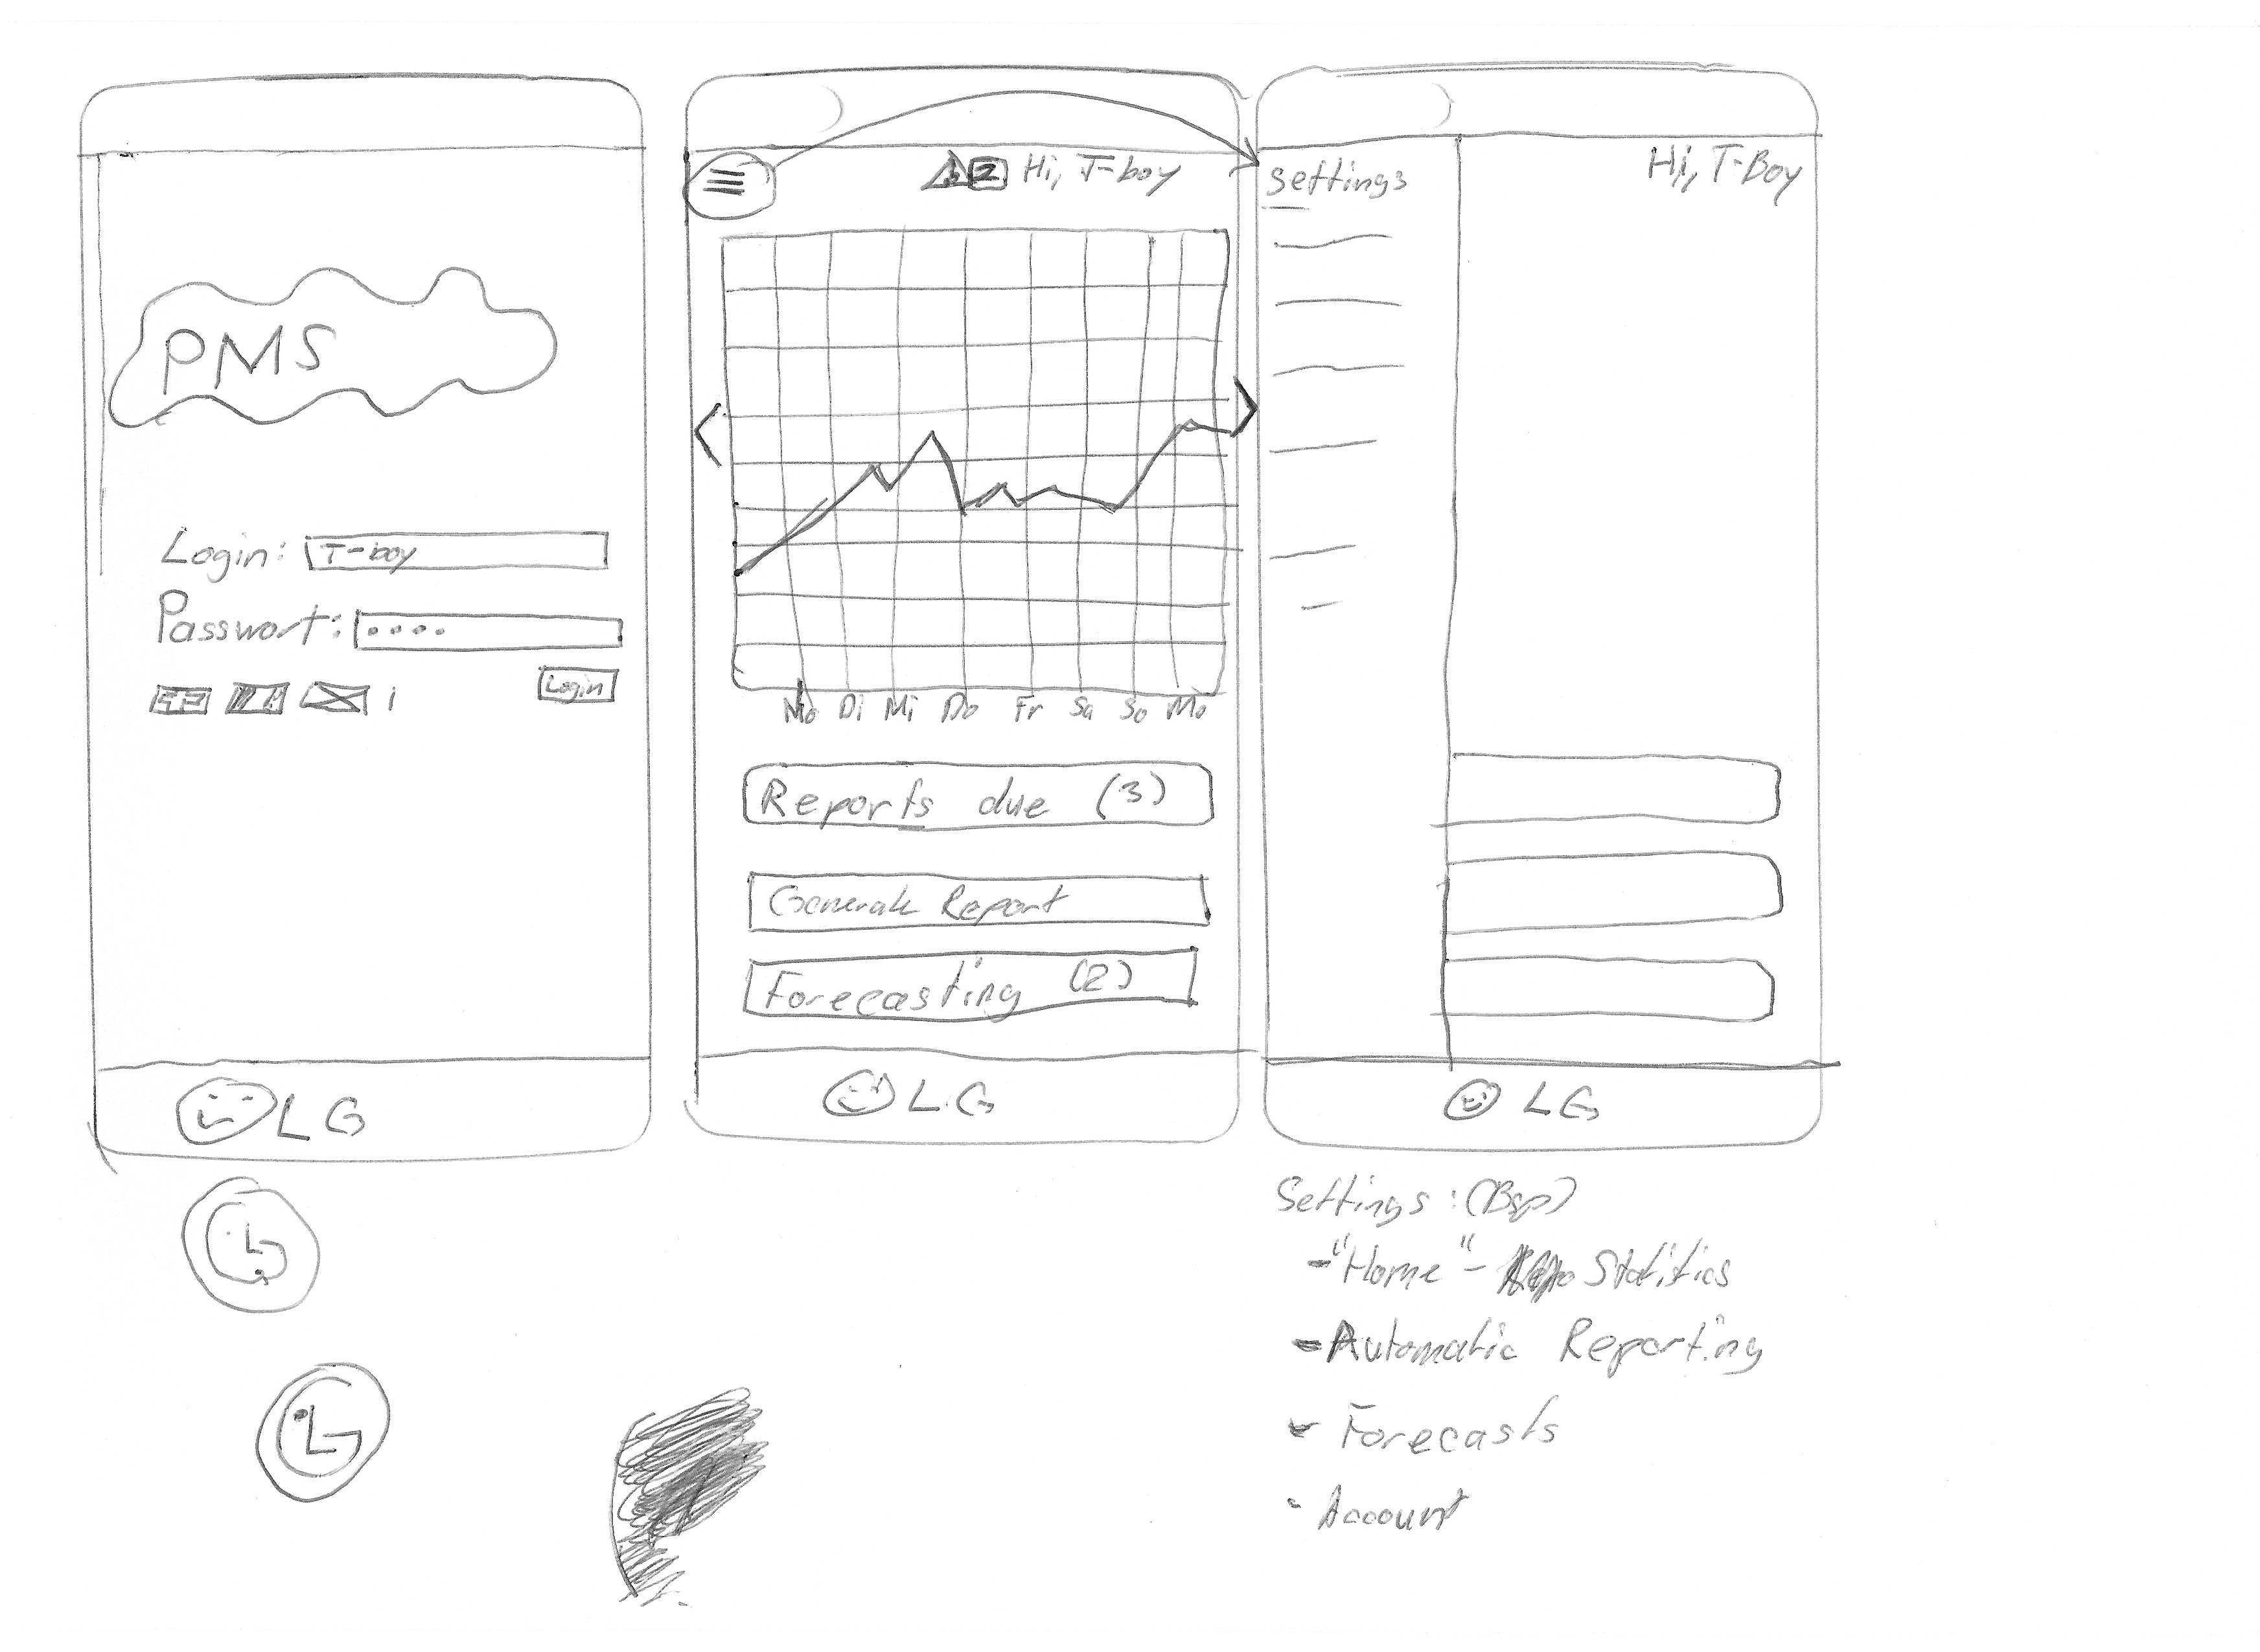 PMS
Login: T-boy
Passwort: ••••
Login
LG
2 Hi, T-boy
Mo Di Mi Do Fr Sa So Mo
Reports due (3)
Generate Report
Forecasting (2)
LG
settings
Hi, T-Boy
LG
Settings: (Bsp)
- "Home" - Statitics
- Automatic Reporting
- Forecasts
- Account
LG
LG